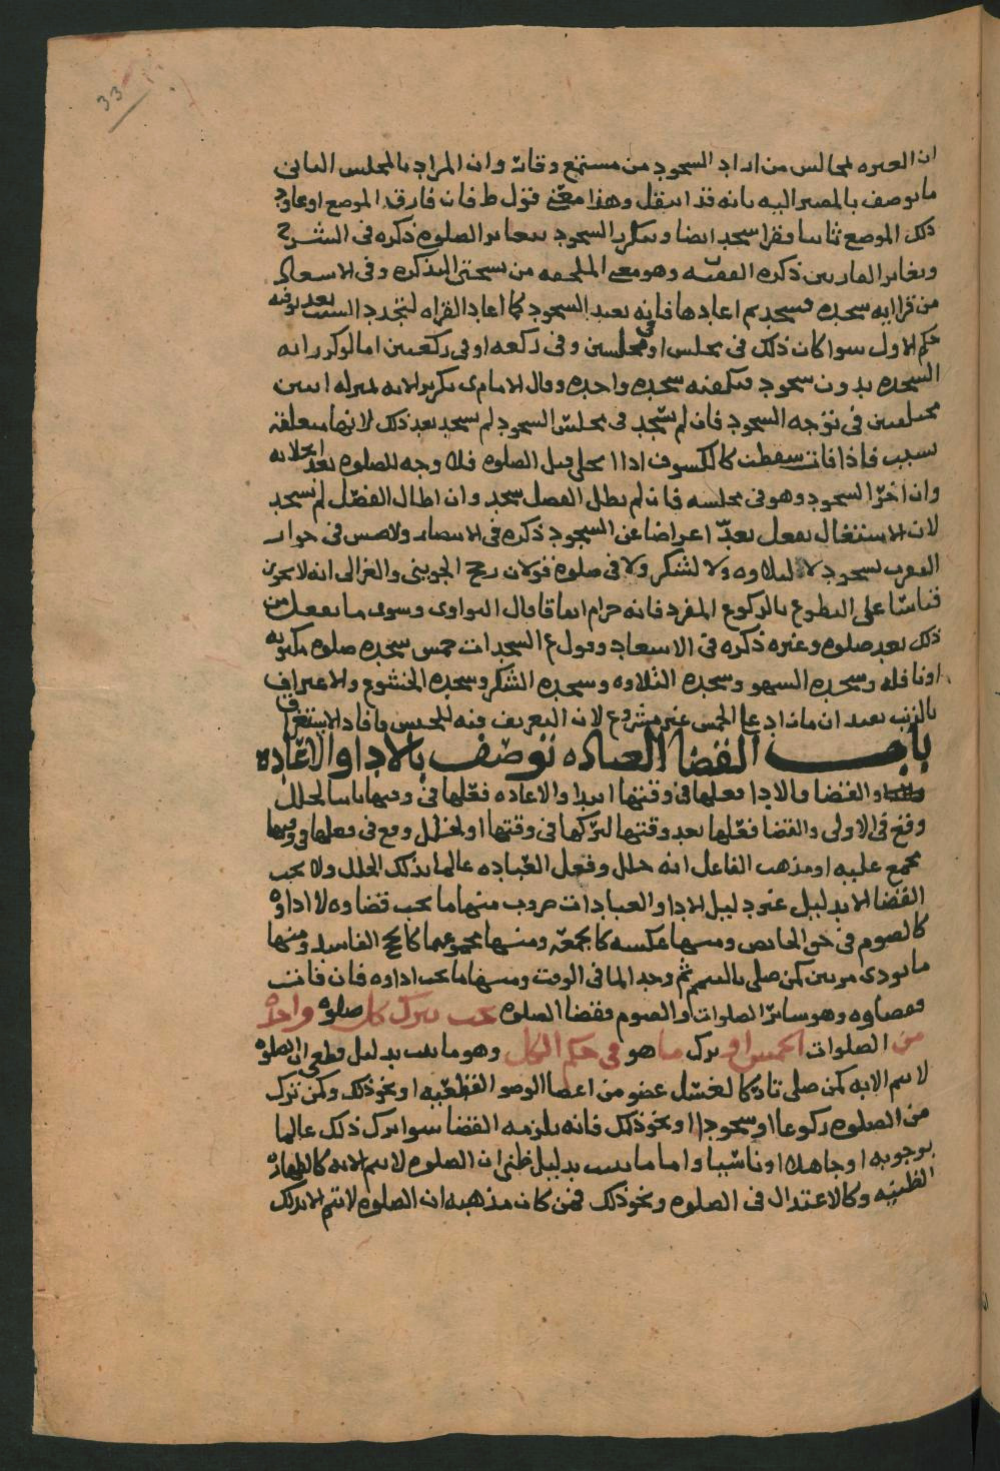 33
ان العبره لمجالس من اراد السجود من مستمع وقات وان المراد بالمجلس الثاني
ما يوصف بالمصير اليه بانه قد انتقل وهذا معنى قول ط فان فارق الموضع او عاود
ذلك الموضع ثانيا وقرا سجد ايضا وتكرار السجود بتغاير الصلوه ذكره في الشرح
وبتغاير القاريين ذكره الفقيه وهو معنى الملحمه من نسختي التذكره وفي الاسعاد
من قرا ايه سجده فسجد ثم اعادها فانه يعيد السجود كما اعاد القراه لتجدد السبب بعد توفيه
حكم الاول سوا كان ذلك في مجلس او في مجلسين وفي ركعه او في ركعتين اما لو كرر ايه
السجده بدون سجود فتكفيه سجده واحده وقال الامام ى تكرير الايه بمنزله ايتين
مختلفتين في توجه السجود فان لم يسجد في مجلس السجود لم يسجد بعد ذلك لانها متعلقه
بسبب فاذا فات سقطت كالكسوف اذا انجلى قبل الصلوه فلا وجه للصلوه بعد انجلائه
وان اخر السجود وهو في مجلسه فان لم يطل الفصل سجد وان اطال الفصل لم يسجد
لان الاشتغال بفعل يعد اعراضا عن السجود ذكره في الانتصار ولاصش في جواز
التقرب بسجود لا لتلاوه ولا لشكر ولا في صلوه قولان رجح الجويني والغزالي انه لا يجوز
قياسا على التطوع بالركوع المفرد فانه حرام اتفاقا قال النواوي وسوى ما يفعل من
ذلك بعد صلوه وغيره ذكره في الاسعاد وقول ع السجدات خمس سجده صلوه مكتوبه
او نافله وسجده السهو وسجده التلاوه وسجده الشكر وسجده الخشوع والاعتراف
بالذنب يفيد ان ما زاد على الخمس غير مشروع لان التعريف فيه للجنس فافاد الاستغراق
باب القضا العباده توصف بالادا والاعاده
والقضا فالادا فعلها في وقتها ابتدا والاعاده فعلها في وقتها ثانيا لخلل
وقع في الاولى والقضا فعلها بعد وقتها لتركها في وقتها او لخلل وقع في فعلها في وقتها
مجمع عليه او مذهب الفاعل انه خلل وفعل العباده عالما بذلك الخلل ولا يجب
القضا الا بدليل غير دليل الادا والعبادات ضروب منها ما يجب قضاوه لا اداوه
كالصوم في حق الحائض ومنها عكسه كالجمعه ومنها مجموعهما كالحج الفاسد ومنها
ما يودى مرتين كمن صلى بالتيمم ثم وجد الما في الوقت ومنها ما يجب اداوه فان فات
فقضاوه وهو سائر الصلوات والصوم فقضا الصلوه يجب بترك كل صلوه واحده
من الصلوات الخمس او بترك ما هو في حكم الكل وهو ما ثبت بدليل قطعي ان الصلوه
لا تتم الا به كمن صلى تاركا لغسل عضو من اعضا الوضو القطعيه او نحو ذلك وكمن ترك
من الصلوه ركوعا او سجودا او نحو ذلك فانه يلزمه القضا سوا ترك ذلك عالما
بوجوبه او جاهلا او ناسيا واما ما ثبت بدليل ظني ان الصلوه لا تتم الا به كالطهاره
الظنيه وكالاعتدال في الصلوه ونحو ذلك فمن كان مذهبه ان الصلوه لا تتم الا بذلك